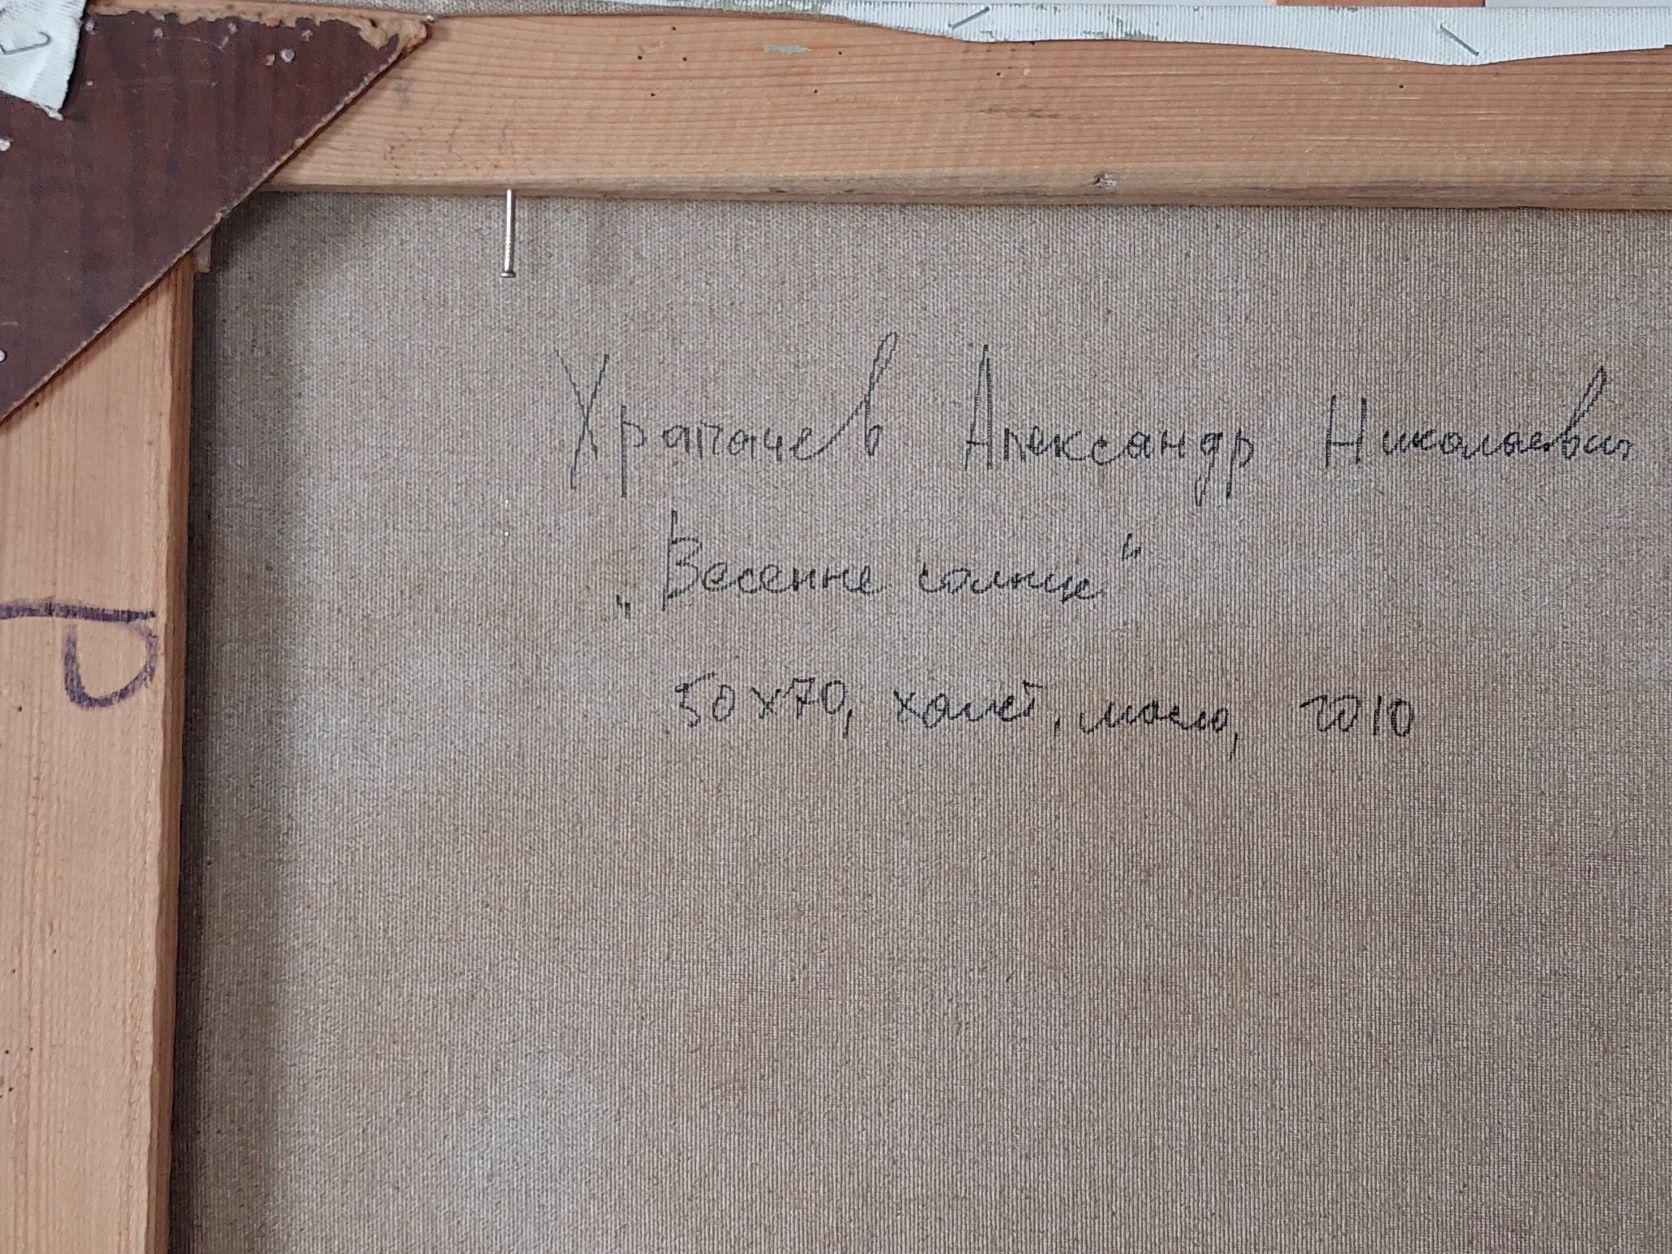 Храпачев Александр Николаевич
„Весенне солнце“
50х70, холст, масло, 2010
Р